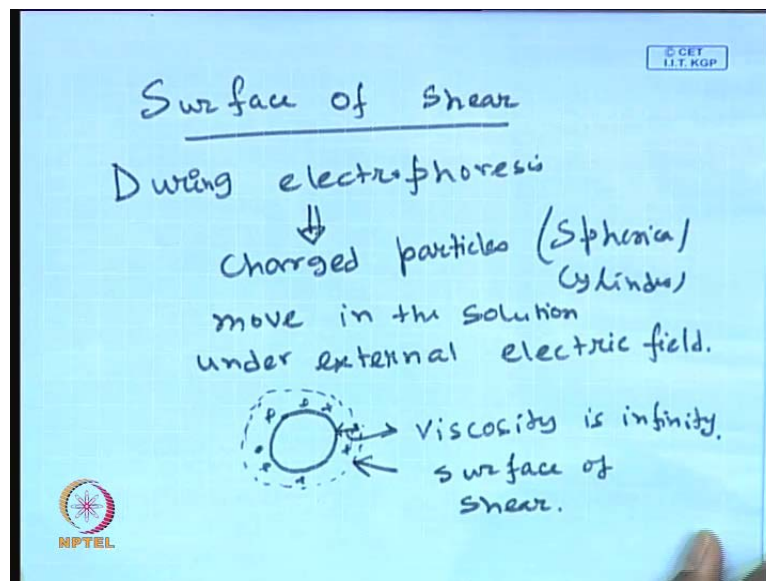 © CET
I.I.T. KGP
Surface of Shear
During electrophoresis
⇓
Charged particles (Spherical/
Cylinder)
move in the solution
under external electric field.
→ Viscosity is infinity.
← surface of
shear.
NPTEL